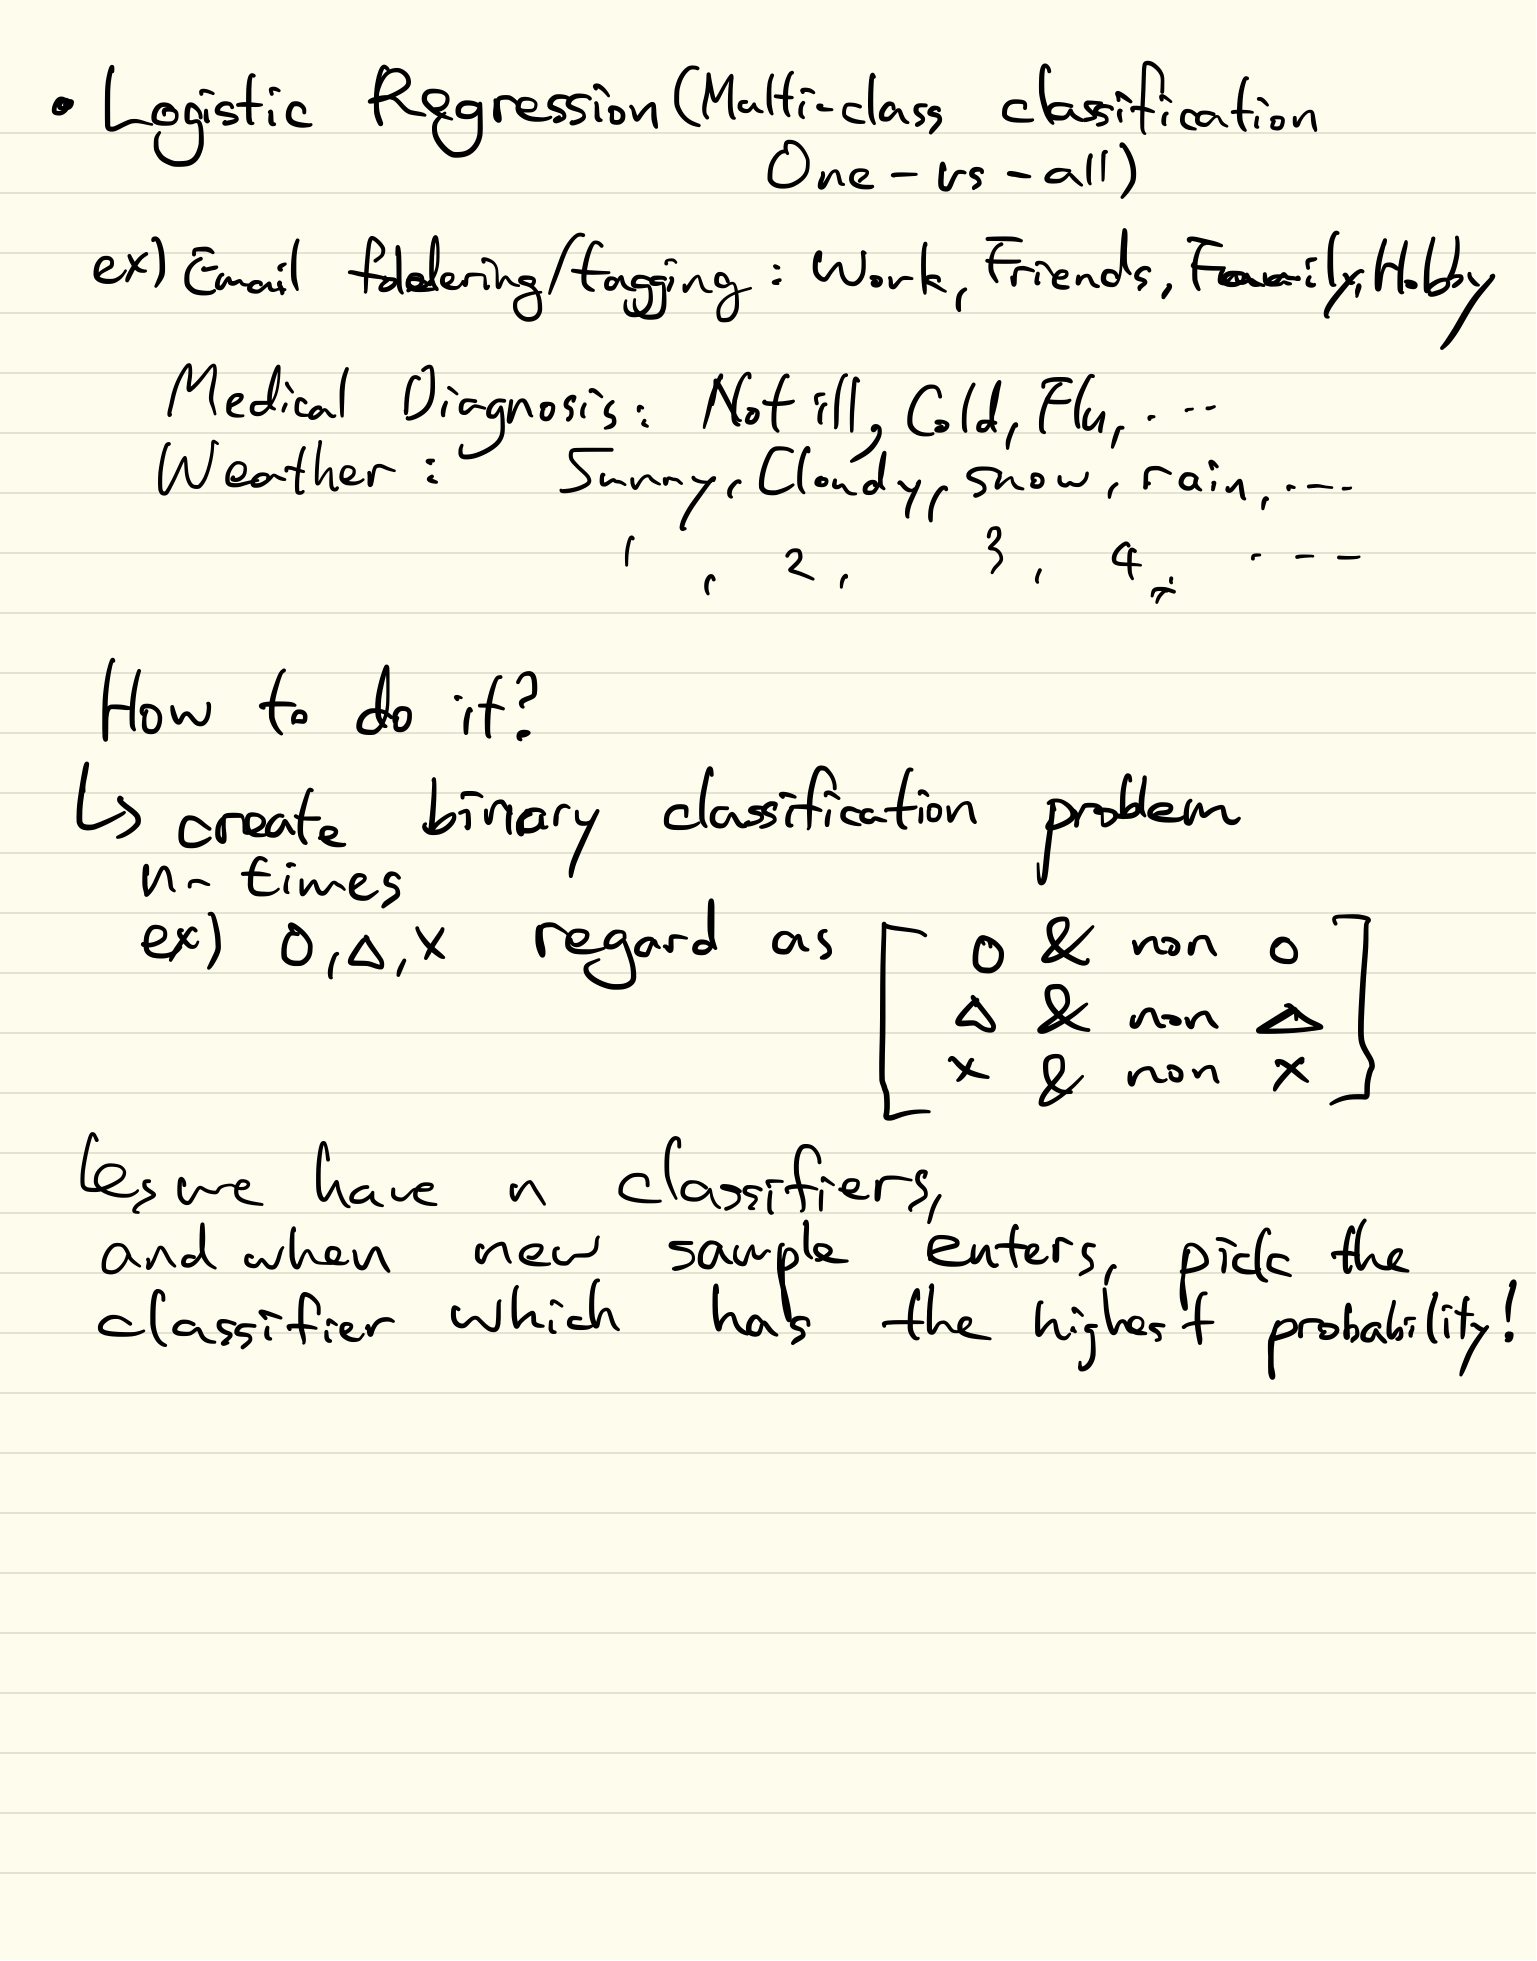 • Logistic Regression (Multi-class classification
One-vs-all)
ex) Email foldering/tagging : Work, Friends, Family, Hobby
Medical Diagnosis: Not ill, Cold, Flu, ...
Weather : Sunny, Cloudy, snow, rain, ...
1 , 2 , 3 , 4 , ...
How to do it?
↳ create binary classification problem
n- times
ex) O, △, X regard as [ O & non O
△ & non △
X & non X ]
we have n classifiers,
and when new sample enters, pick the
classifier which has the highest probability!